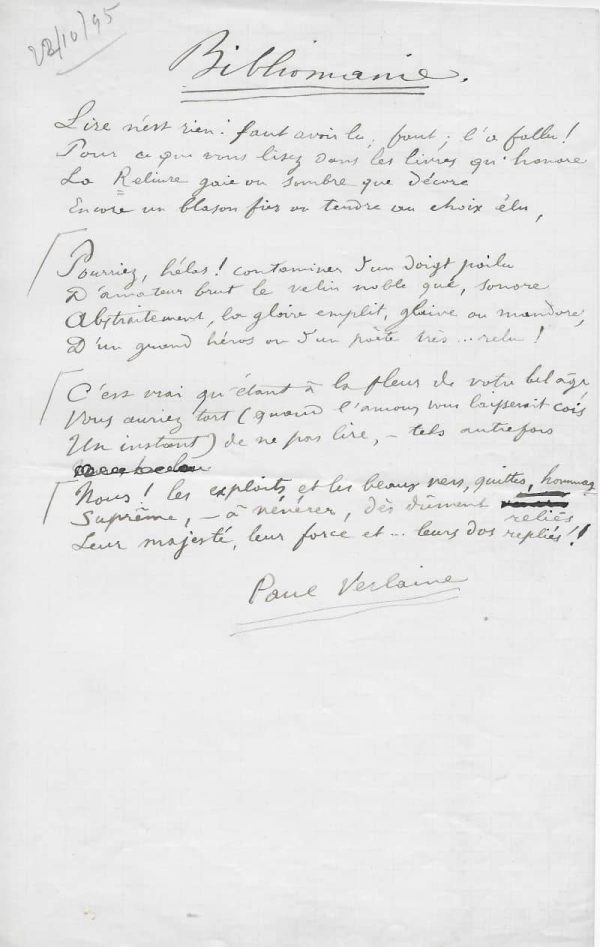 22/10/95
Bibliomanie.
Lire n'est rien : faut avoir lu ; faut ; l'a fallu !
Pour ce que vous lisez dans les livres qu'honore
La Reliure gaie ou sombre que décore
Encore un blason fier ou tendre au choix élu,
Pourriez, hélas ! contaminer d'un doigt poilu
D'amateur brut le vélin noble que, sonore
Abstraitement, la gloire emplit, glaive ou mandore,
D'un grand héros ou d'un poète très ... relu !
C'est vrai qu'étant à la fleur de votre bel âge
Vous auriez tort (quand l'amour vous laisserait cois
Un instant) de ne pas lire, — tels autrefois
Nous ! les exploits et les beaux vers, quittes, hommage
Suprême, — à vénérer, dès dûment reliés
Leur majesté, leur force et ... leurs dos repliés !!
Paul Verlaine